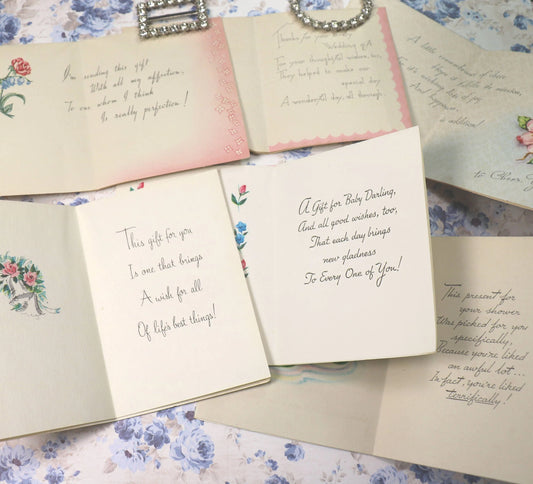 I'm sending this gift
With all my affection,
To one whom I think
Is really perfection!
Thanks for your
Wedding
For your thoughtful wishes, too,
They helped to make our
special day
A wonderful day, all through.
A little
to
This gift for you
Is one that brings
A wish for all
Of life's best things!
A Gift for Baby Darling,
And all good wishes, too,
That each day brings
new gladness
To Every One of You!
This present for
your shower
Was picked for you
specifically,
Because you're liked
an awful lot...
In fact, you're liked
terrifically!